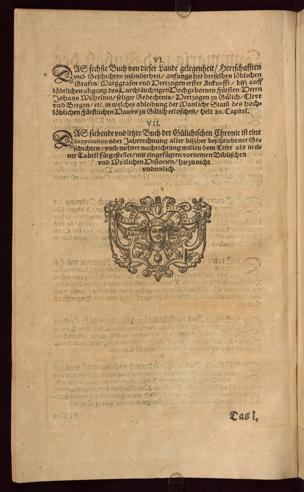 VI.
DAS sechste Buch von dieser Lande gelegenheit / Herrschafften
vnd Geschichten insonderheit / anfangs her derselben löblichen
Grafen / Marggrafen vnd Hertzogen erster Ankunfft / biß auff
tödtlichen abgang des Durchläuchtigen Hochgebornen Fürsten Herrn
Johans Wilhelms / seliger Gedechtnus / Hertzogen zu Gülich / Cleve
vnd Bergen / etc. in welches ableibung der Manliche Stam des hoch-
löblichen Fürstlichen Hauses zu Gülich erloschen / helt 20. Capitel.
VII.
DAS siebende vnd letzte Buch der Gülichischen Chronic ist eine
Supputation oder Jahrrechnung aller bißher beschriebener Ge-
schichten / vmb mehrer nachrichtung willen dem Leser als in ei-
ner Tabell fürgestellet / mit eingefügten vornemen Biblischen
vnd Weltlichen Historien / hierzu nicht
vndienlich.
Das I.